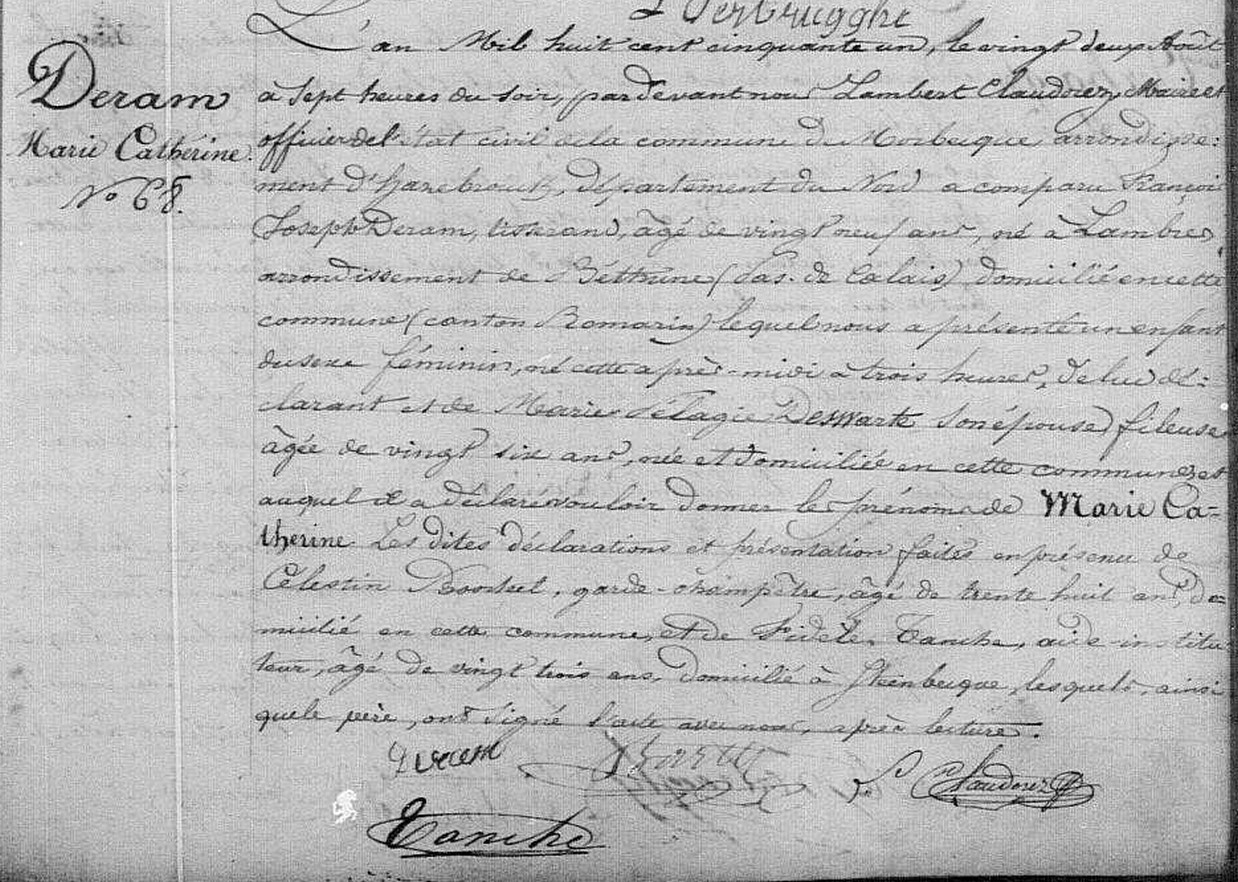 Verbrugghe
L'an Mil huit cent cinquante un, le vingt deux Août
Deram
à sept heures du soir, pardevant nous Lambert Claudorez, Maire et
Marie Catherine.
officier de l'état civil de la commune de Morbecque, arrondisse:
No 68.
ment d'Hazebrouck, département du Nord a comparu François
Joseph Deram, tisserand, âgé de vingt neuf ans, né à Lambres
arrondissement de Béthune (Pas-de Calais) domicilié en cette
commune (canton Romarin) lequel nous a présenté un enfant
du sexe féminin, né cette après-midi à trois heures, de lui dé:
clarant et de Marie Pélagie Deswarte son épouse, fileuse
âgée de vingt six ans, née et domiciliée en cette commune et
auquel il a déclaré vouloir donner les prénoms de Marie Ca=
therine Les dites déclarations et présentation faites en présence de
Célestin garde-champêtre, âgé de trente huit ans, do=
micilié en cette commune, et de Fidèle Tanche, aide-institu
teur, âgé de vingt trois ans, domicilié à Steenbecque, lesquels, ainsi
que le père, ont signé l'acte avec nous, après lecture.
Deram L Claudorez
Tanche